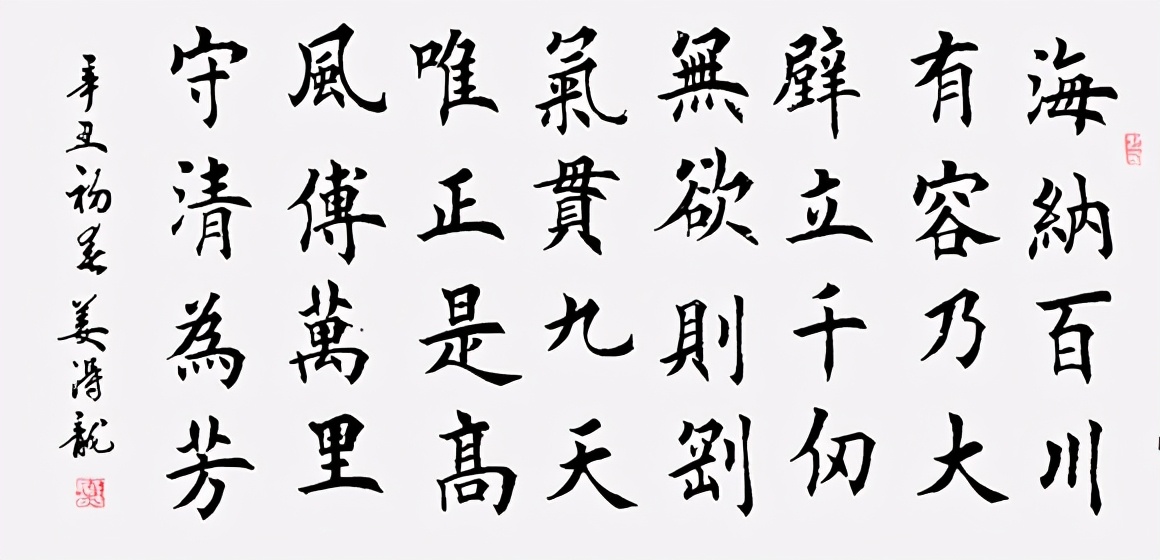 海納百川
有容乃大
辟立千仭
無欲則剛
氣貫九天
唯正是髙
風傅萬里
守清為芳
辛丑初春姜得龍